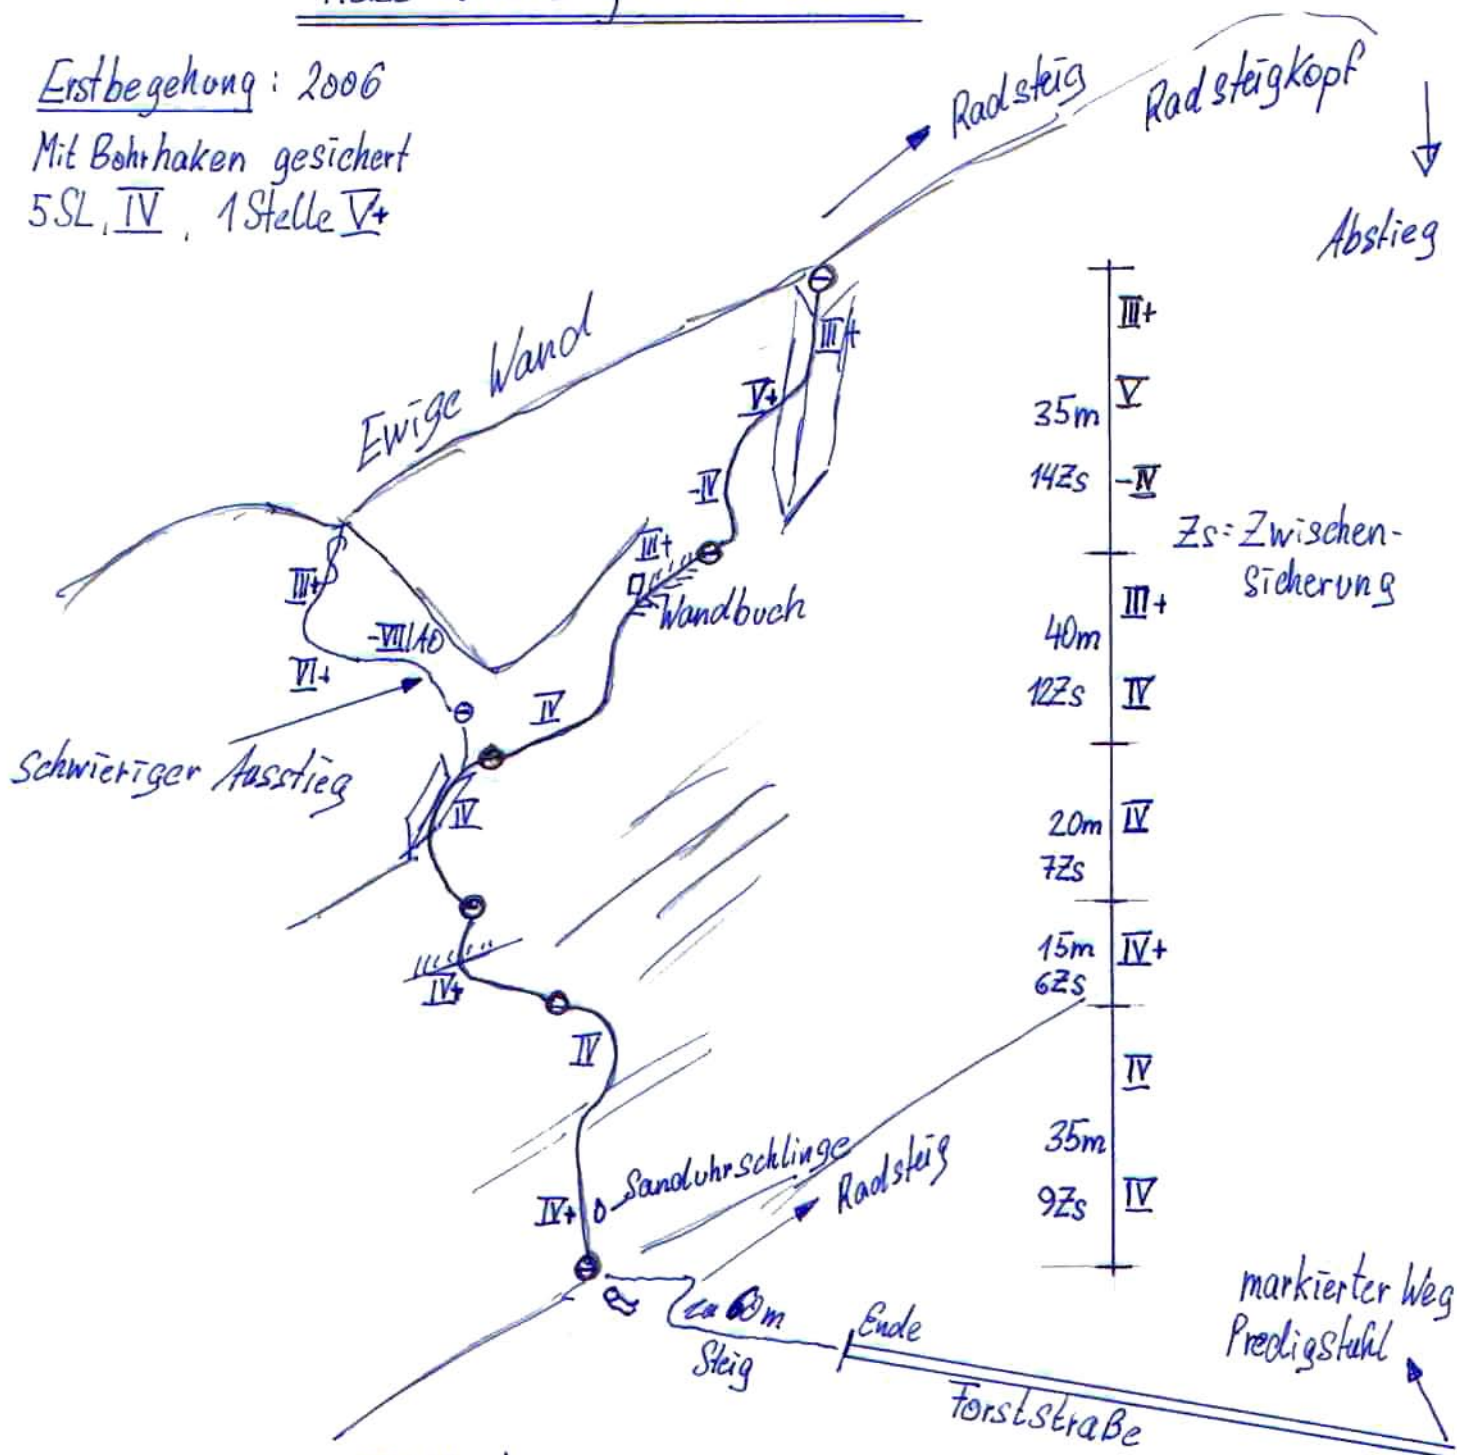 Erstbegehung: 2006
Mit Bohrhaken gesichert
5SL, IV, 1 Stelle V+
Radsteig
Radsteigkopf
Abstieg
Ewige Wand
III+
V+
-IV
III+
Wandbuch
III+
-VII/A0
VI+
IV
Schwieriger Ausstieg
IV
IV+
IV
IV+
Sanduhrschlinge
Radsteig
m
Steig
Ende
Forststraße
markierter Weg
Predigstuhl
III+
35m V
14Zs -IV
Zs=Zwischen-
sicherung
III+
40m
12Zs IV
20m IV
7Zs
15m IV+
6Zs
IV
35m
9Zs IV